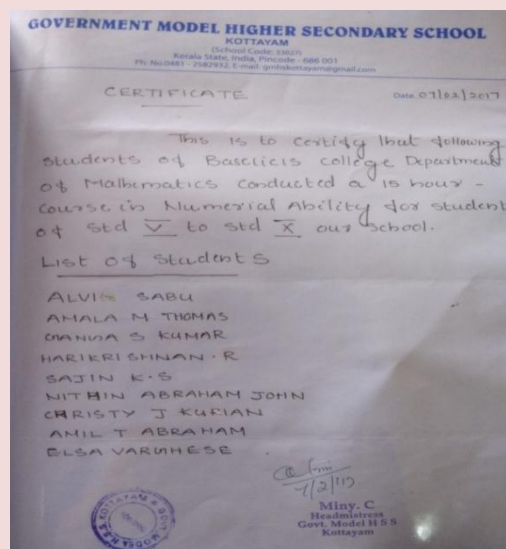 GOVERNMENT MODEL HIGHER SECONDARY SCHOOL
KOTTAYAM
(School Code: 33027)
Kerala State, India, Pincode - 686 001
Ph: No:0481 - 2582932, E-mail: gmhskottayam@gmail.com
CERTIFICATE
Date 07/02/2017
This is to certify that following
students of Baselieis college Department
of Mathematics conducted a 15 hour -
course in Numerial Ability for student
of std V to std X our school.
List of students
ALVIN SABU
AMALA M THOMAS
S KUMAR
HARIKRISHNAN. R
SAJIN K.S
NITHIN ABRAHAM JOHN
CHRISTY J KURIAN
AMIL T ABRAHAM
ELSA VARGHESE
7/2/17
Miny. C
Headmistress
Govt. Model H S S
Kottayam